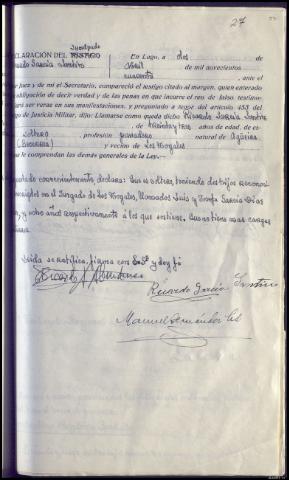 27
DECLARACIÓN DEL TESTIGO Inculpado
Ricardo García Santiso
En Lugo, a dos de
Abril de mil novecientos
cuarenta, ante el
Juez y de mi el Secretario, compareció el testigo citado al margen, quien enterado
obligación de decir verdad y de las penas en que incurre el reo de falso testimo-
será veraz en sus manifestaciones, y preguntado a tenor del artículo 453 del
de Justicia Militar, dijo: Llamarse como queda dicho Ricardo García Santiso
de treinta y tres años de edad, de es-
soltero, profesión panadero natural de
y vecino de Los Nogales
le comprendan las demás generales de la Ley.
convenientemente declara: Que es soltero, teniendo dos hijos reconoci-
en el Juzgado de Los Nogales, llamados Luis y Josefa García Días
y ocho años respectivamente a los que sostiene. Que no tiene mas cargas
Leida se ratifica, firma con S.Sª y doy fé
Ricardo García Santiso
Manuel Fernández